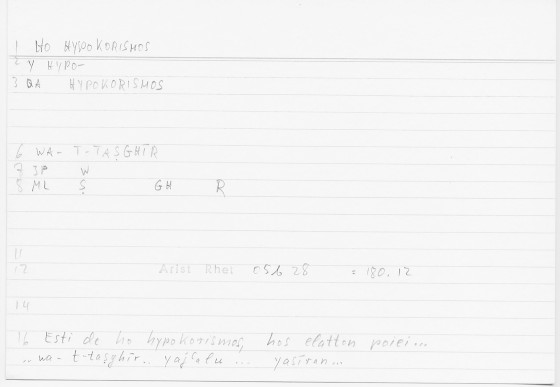 1 HO HYPOKORISMOS
2 Y HYPO-
3 QA HYPOKORISMOS
6 WA- T-TAṢGHĪR
7 3P W
8 ML Ṣ GH R
11
12 Aristot Rhet 05b 28 = 180.12
14
16 Esti de ho hypokorismos, hos elatton poiei...
.. wa- t-taṣghīr.. yajʿalu ... yasīran...